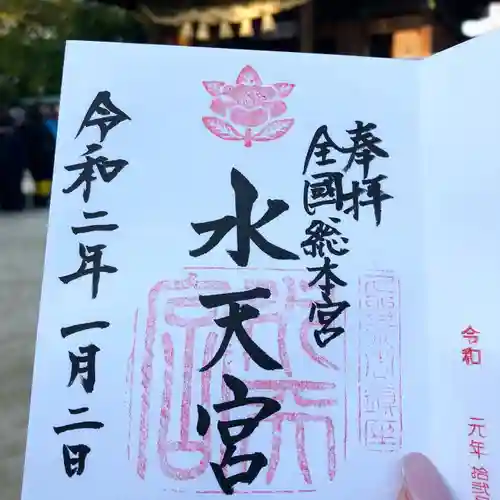 奉拝
全国総本宮
水天宮
令和二年一月二日
令和 元年 拾弐